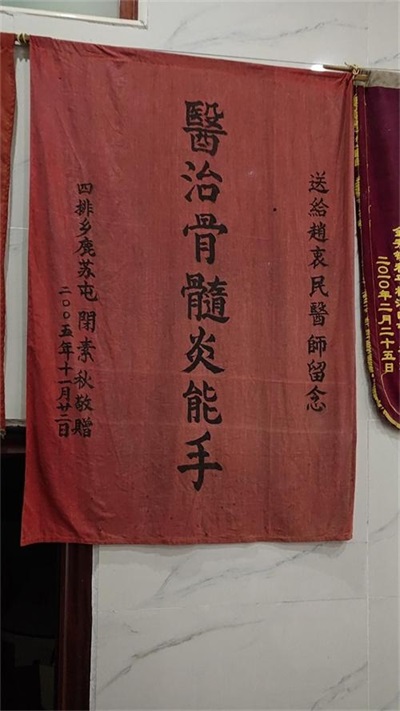 送給趙衷民醫師留念
醫治骨髓炎能手
四排乡鹿苏屯 閉素秋敬贈
二〇〇五年十一月廿二日
二〇一〇年二月二十五日